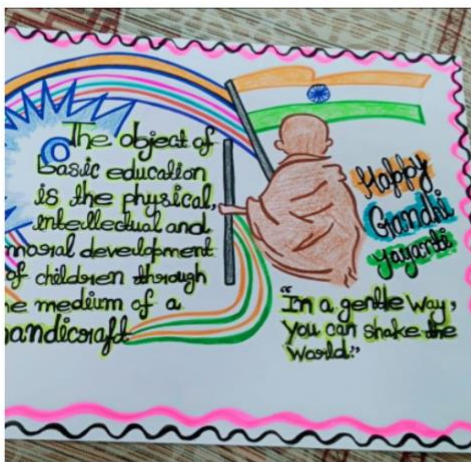 The object of
basic education
is the physical,
intellectual and
moral development
of children through
he medium of a
handicraft.
Happy
Grandhi
Jayanti
"In a gentle way,
you can shake the
world."